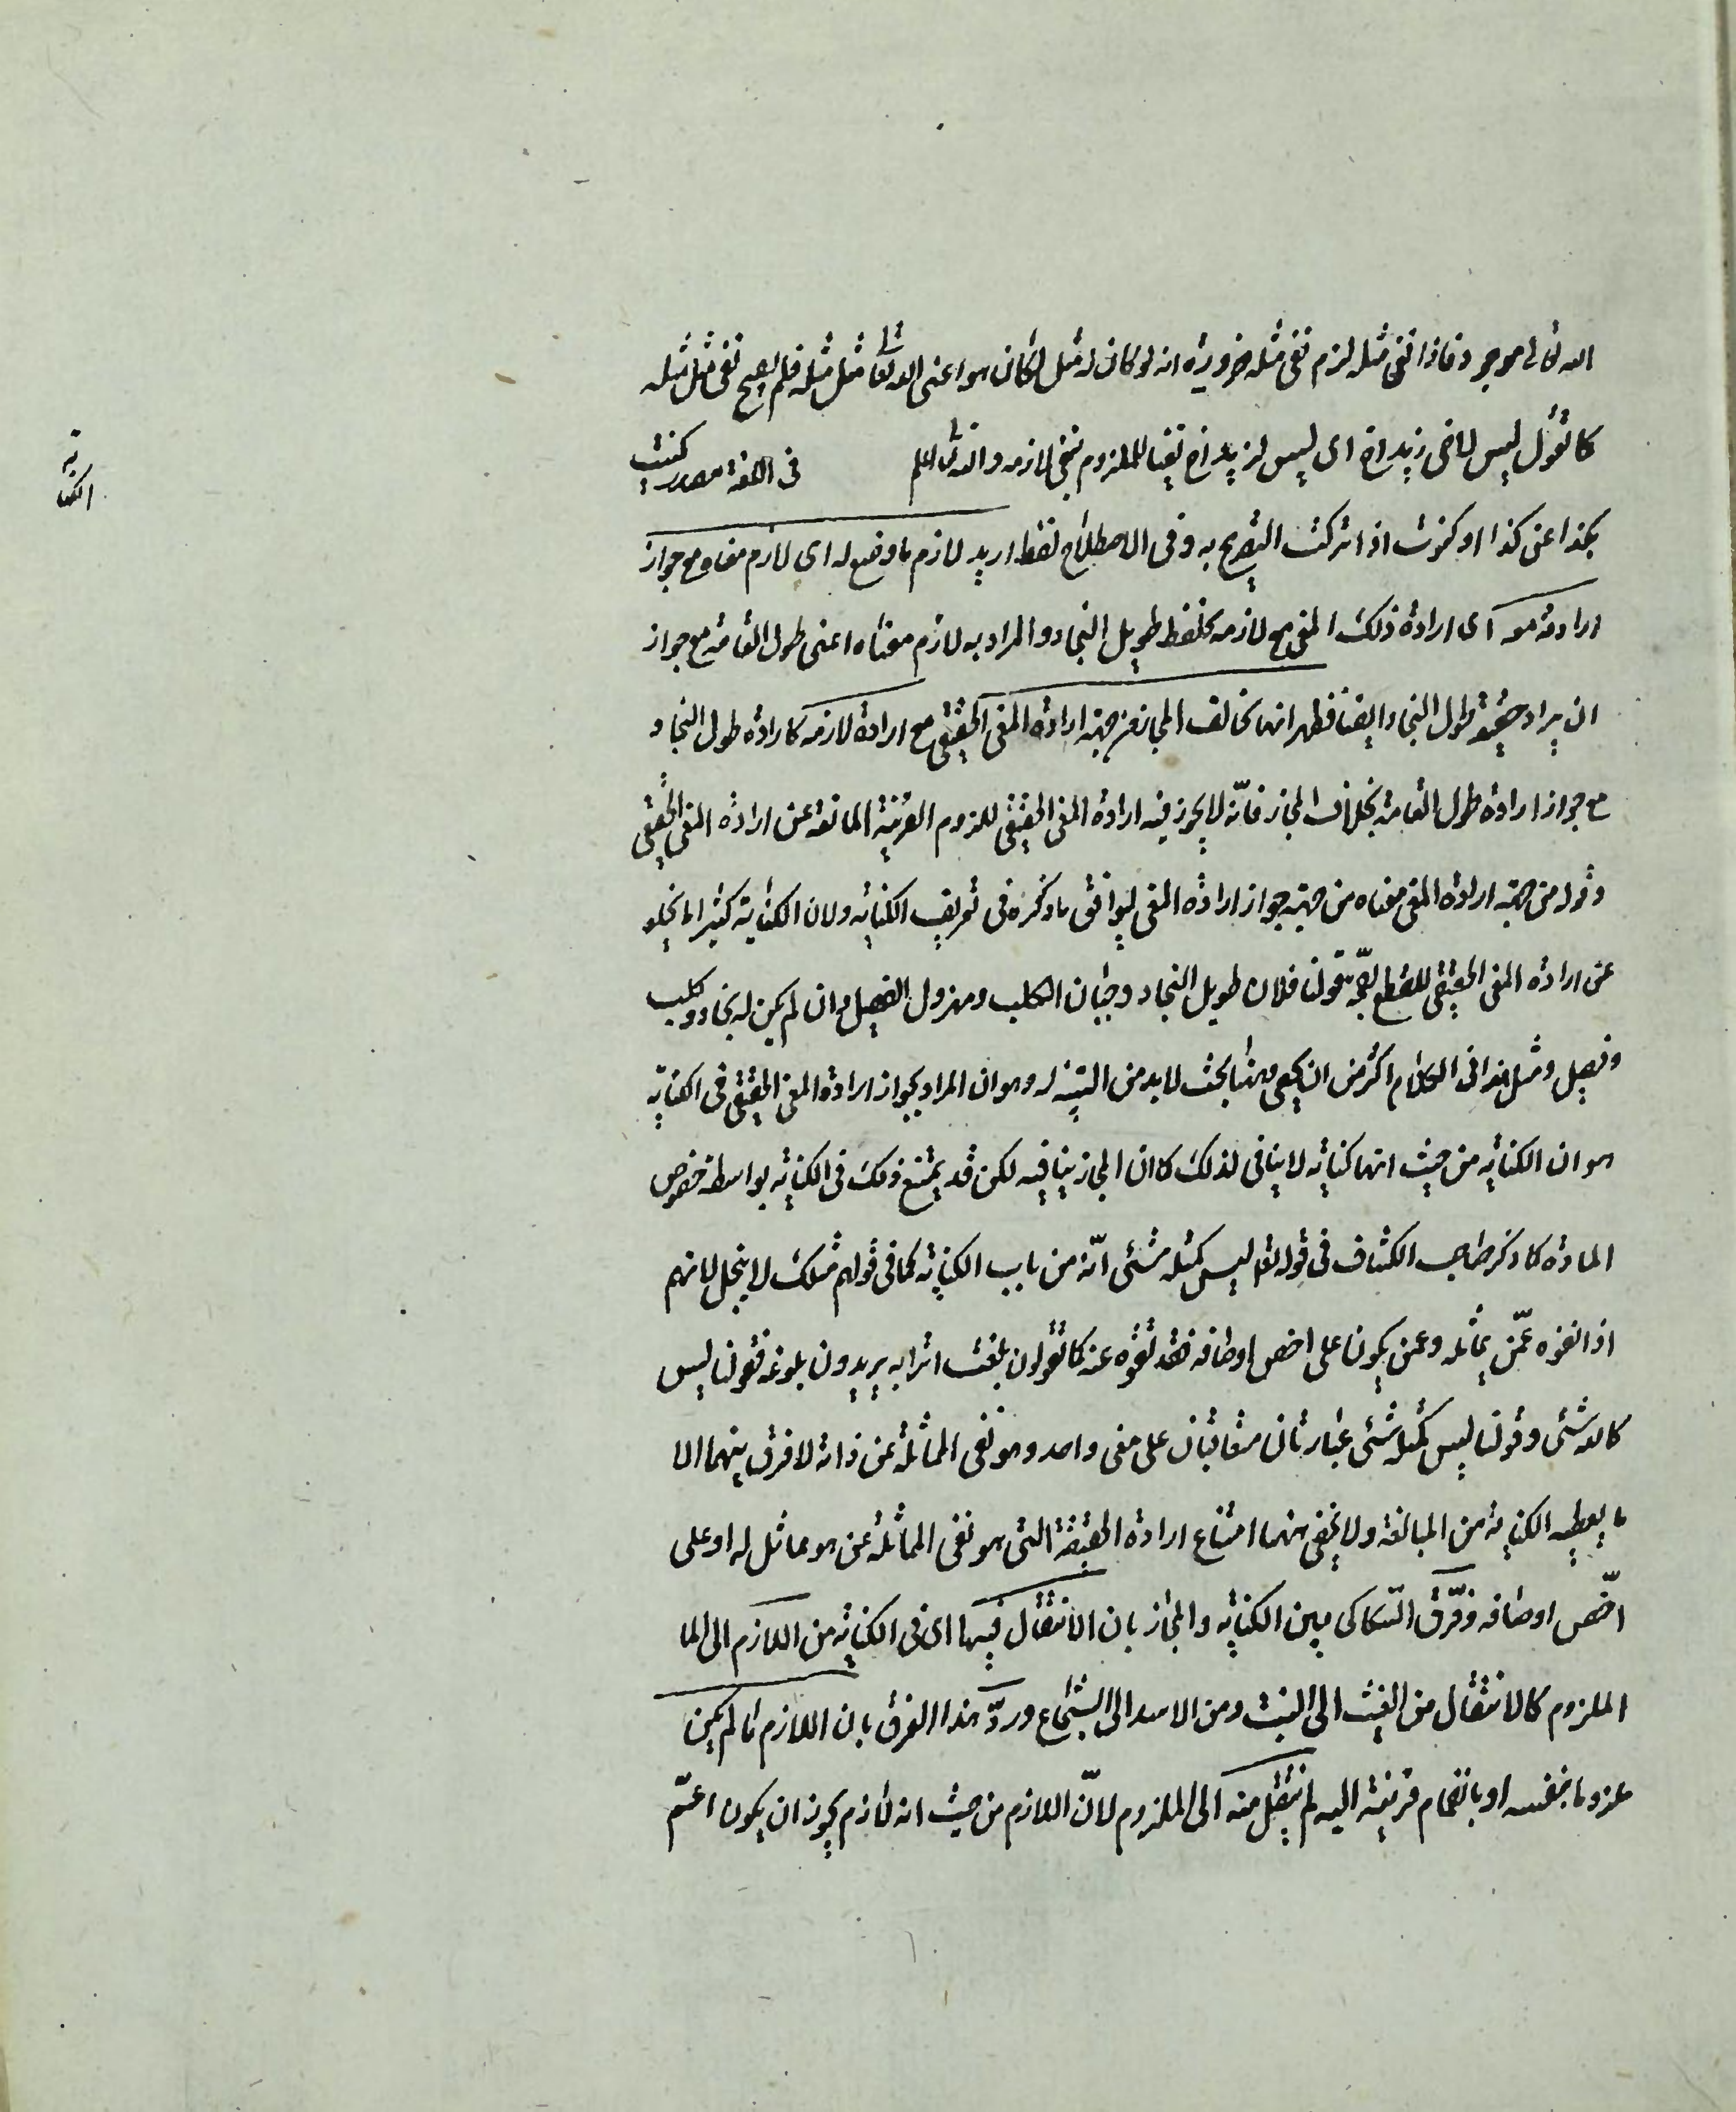 الله تعالى موجود فاذا نفى مثل مثله لزم نفى مثله ضرورة انه لو كان له مثل لكان هو اعنى الله تعالى مثل مثله فلم يصح نفى مثل مثله
كما تقول ليس لاخى زيد اخ اى ليس لزيد اخ نفيا للملزوم بنفى لازمه والله اعلم فى اللغة مصدر كنيت
الكناية
بكذا عن كذا او كنوت اذا تركت التصريح به وفى الاصطلاح لفظ اريد لازم ما وضع له اى لازم معناه مع جواز
ارادته معه اى ارادة ذلك المعنى مع لازمه كلفظ طويل النجاد والمراد به لازم معناه اعنى طول القامة مع جواز
ان يراد حقيقة طول النجاد ايضا فظهر انها تخالف المجاز من جهة ارادة المعنى الحقيقى مع ارادة لازمه كارادة طول النجاد
مع جواز ارادة طول القامة بخلاف المجاز فانّه لا يجوز فيه ارادة المعنى الحقيقى للزوم القرينة المانعة عن ارادة المعنى الحقيقى
وقوله من جهة ارادة المعنى معناه من جهة جواز ارادة المعنى ليوافق ما ذكره فى تعريف الكناية ولان الكناية كثيرا ما تخلو
عن ارادة المعنى الحقيقى للقطع بصحّة قولنا فلان طويل النجاد وجبان الكلب ومهزول الفصيل وان لم يكن له نجاد وكلب
وفصيل ومثل هذا فى الكلام اكثر من ان يحصى وههنا بحث لابد من التنبيه له وهو ان المراد بجواز ارادة المعنى الحقيقى فى الكناية
هو ان الكناية من حيث انها كناية لا ينافى لذلك كما ان المجاز ينافيه لكن قد يمتنع ذلك فى الكناية بواسطة خصوص
المادة كما ذكر صاحب الكشاف فى قوله تعالى ليس كمثله شئ انّه من باب الكناية كما فى قولهم مثلك لا يبخل لانهم
اذا نفوه عمّن يماثله وعمن يكون على اخص اوصافه فقد نفوه عنه كما تقولون بلغت اترابه يريدون بلوغه فقولنا ليس
كالله شئ وقولنا ليس كمثله شئ عبارتان متعاقبتان على معنى واحد وهو نفى المماثلة عن ذاته لا فرق بينهما الا
ما يعطيه الكناية من المبالغة ولا يخفى ههنا امتناع ارادة الحقيقة التى هو نفى المماثلة عن هو مماثل له او على
اخّص اوصافه وفرّق السّكاكى بين الكناية والمجاز بان الانتقال فيها اى فى الكناية من اللازم الى الما
الملزوم كالانتقال من الغيث الى النبت ومن الاسد الى الشجاع وردّ هذا الفرق بان اللازم ما لم يكن
ملزوما بنفسه او بانضمام قرينة اليه لم ينتقل منه الى الملزوم لانّ اللازم من حيث انه لازم يجوز ان يكون اعمّ